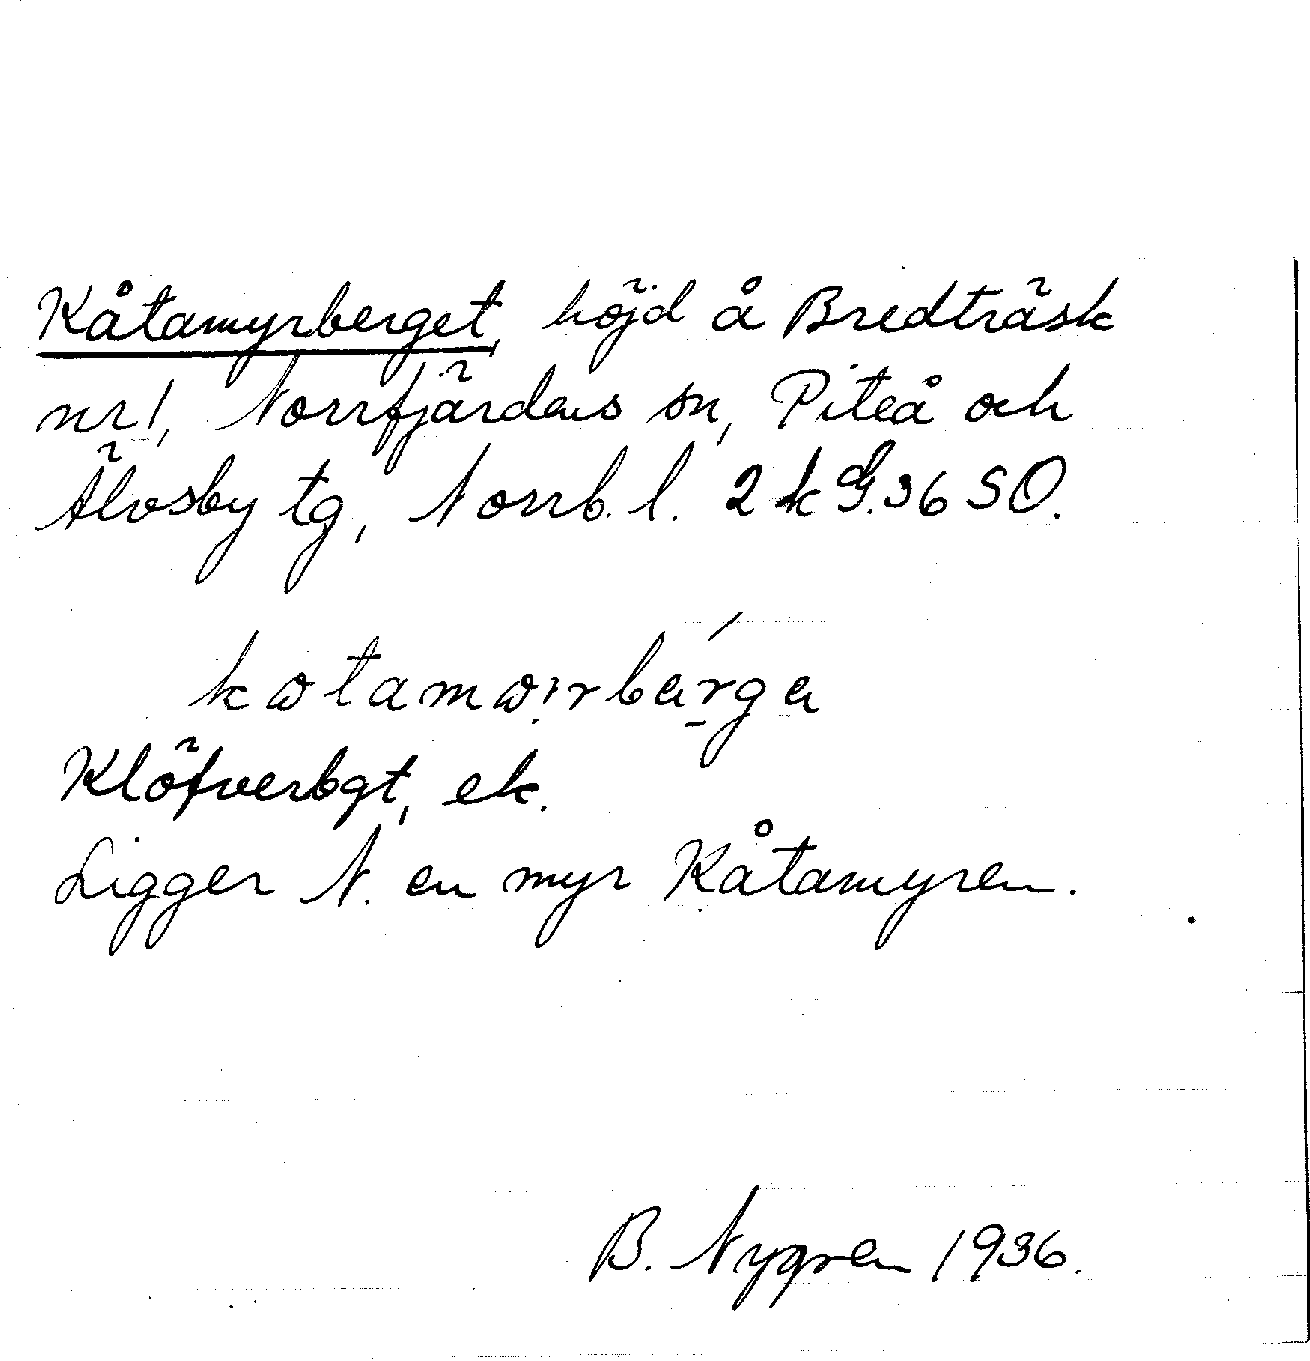 Kåtamyrberget, höjd å Bredträsk
nr 1, Norrfjärdens sn, Piteå och
Älvsby tg, Norrb. l. 2 k G. 36 SO.
kωtamωırbárga
Klöfverbgt, ek.
Ligger N. en myr Kåtamyren.
B. Nygren 1936.